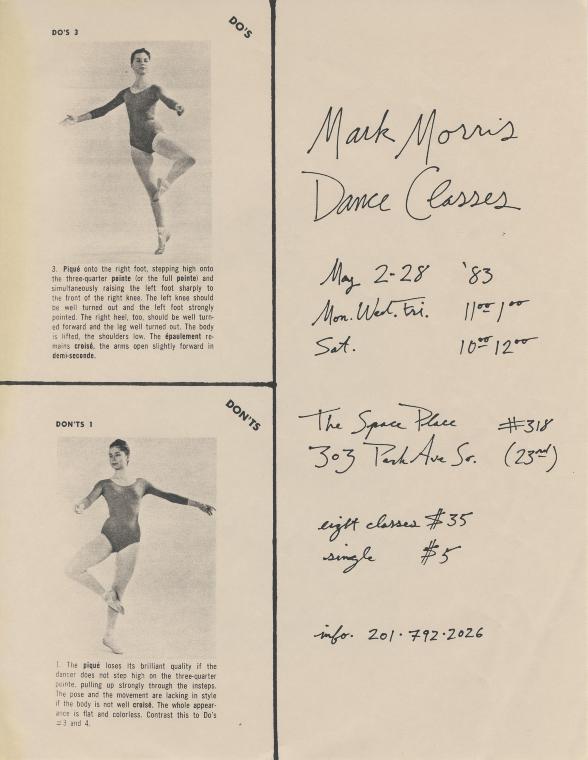 DO'S 3
DO'S
3. Piqué onto the right foot, stepping high onto
the three-quarter pointe (or the full pointe) and
simultaneously raising the left foot sharply to
the front of the right knee. The left knee should
be well turned out and the left foot strongly
pointed. The right heel, too, should be well turn-
ed forward and the leg well turned out. The body
is lifted, the shoulders low. The épaulement re-
mains croisé, the arms open slightly forward in
demi-seconde.
DON'TS
DON'TS 1
1. The piqué loses its brilliant quality if the
dancer does not step high on the three-quarter
pointe, pulling up strongly through the insteps.
The pose and the movement are lacking in style
if the body is not well croisé. The whole appear-
ance is flat and colorless. Contrast this to Do's
#3 and 4.
Mark Morris
Dance Classes
May 2-28 '83
Mon. Wed. Fri. 11:00 1:00
Sat. 10:00 12:00
The Space Place #318
303 Park Ave So. (23rd)
eight classes $35
single $5
info. 201·792·2026